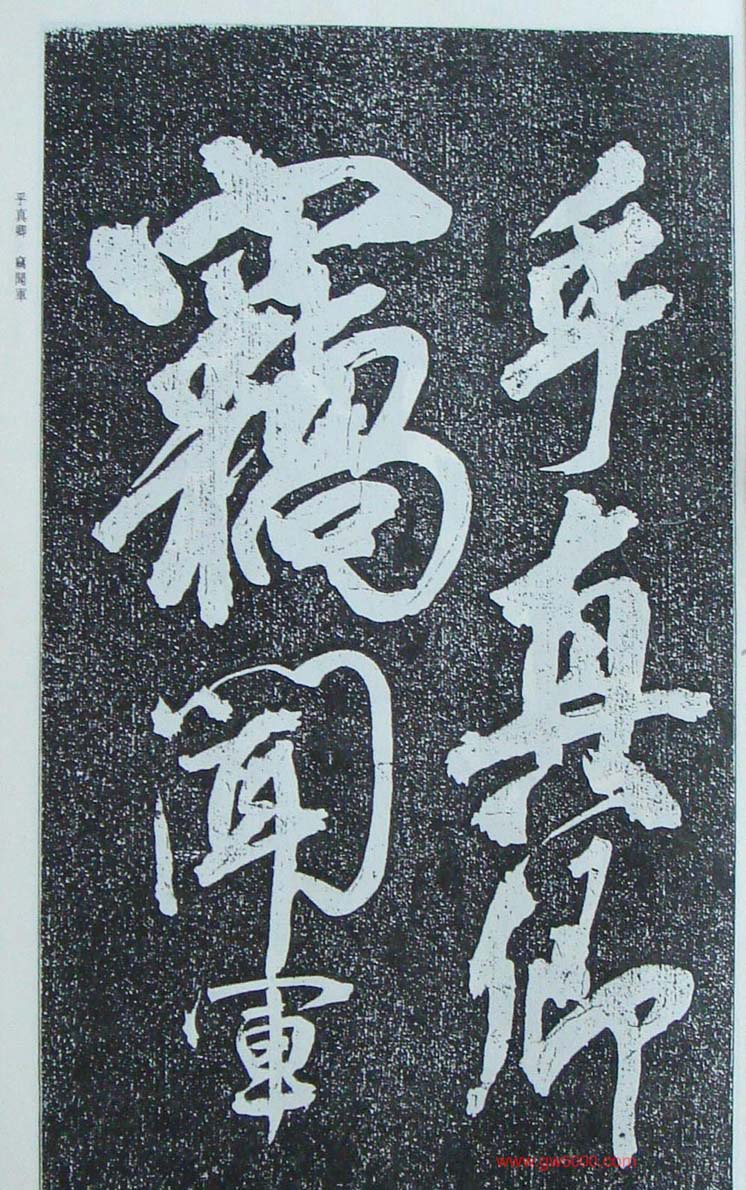 乎真卿
竊聞軍
乎真卿　竊聞軍